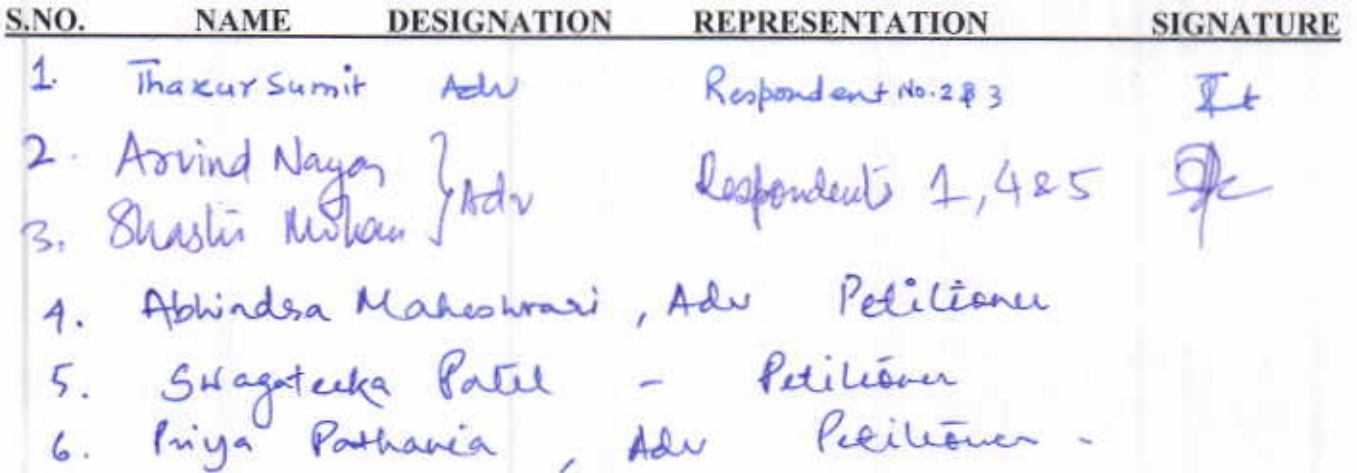 S.NO. NAME DESIGNATION REPRESENTATION SIGNATURE
1. Thakur Sumit Adv Respondent No. 2 & 3
2. Arvind Nayar } Adv Respondents 1, 4 & 5
3. Shashi Mohan
4. Abhindra Maheshwari, Adv Petitioner
5. Swagateeka Patel - Petitioner
6. Priya Pathania, Adv Petitioner -